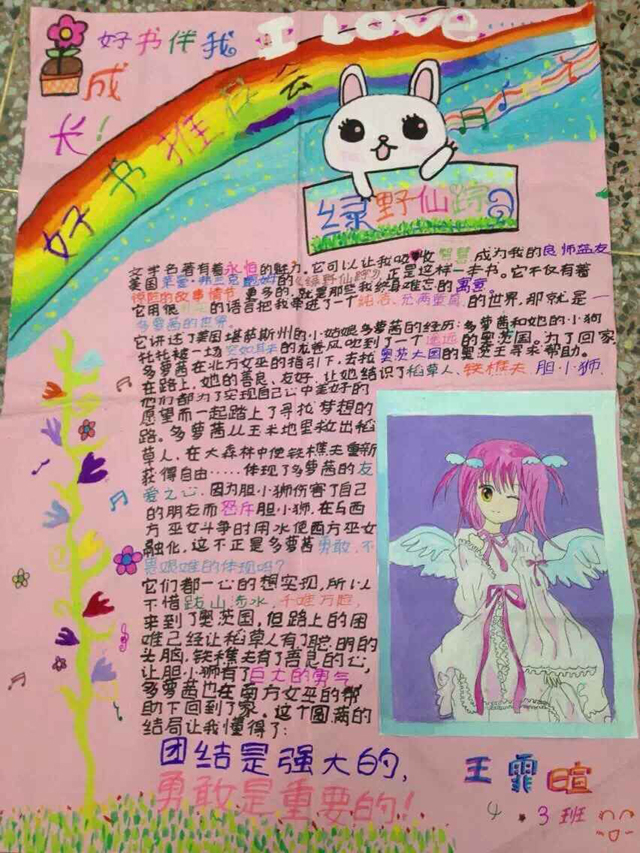 I LOVE
好书伴我
成
长!
好书推荐会
绿野仙踪
文学名著有着永恒的魅力。它可以让我吸收智慧,成为我的良师益友
美国莱曼·弗兰克·鲍姆的《绿野仙踪》正是这样一本书。它不仅有着
惊险的故事情节,更多的,就是那些我终身难忘的寓意。
它用很的语言把我牵进了一个纯洁、充满童真的世界,那就是一
多萝茜的世界。
它讲述了美国堪萨斯州的小姑娘多萝茜的经历:多萝茜和她的小狗
托托被一场突如其来的龙卷风吹到了一个遥远的奥茨国。为了回家
多萝茜在北方女巫的指引下,去拉奥茨大国的奥茨王寻求帮助。
在路上,她的善良、友好,让她结识了稻草人、铁樵夫、胆小狮,
他们都为了实现自己心中美好的
愿望而一起踏上了寻找梦想的
路。多萝茜从玉米地里救出稻
草人,在大森林中使铁樵夫重新
获得自由·····体现了多萝茜的友
爱之心,因为胆小狮伤害了自己
的朋友而怒斥胆小狮,在与西
方女巫斗争时用水使西方女巫
融化,这不正是多萝茜勇敢,不
畏艰难的体现吗?
它们都一心的想实现,所以
不惜跋山涉水,千难万险,
来到了奥茨国,但路上的困
难已经让稻草人有了聪明的
头脑,铁樵夫有了善良的心,
让胆小狮有了巨大的勇气,
多萝茜也在南方女巫的帮
助下回到了家,这个圆满的
结局让我懂得了:
团结是强大的,
勇敢是重要的!
王霏暄
4.3班